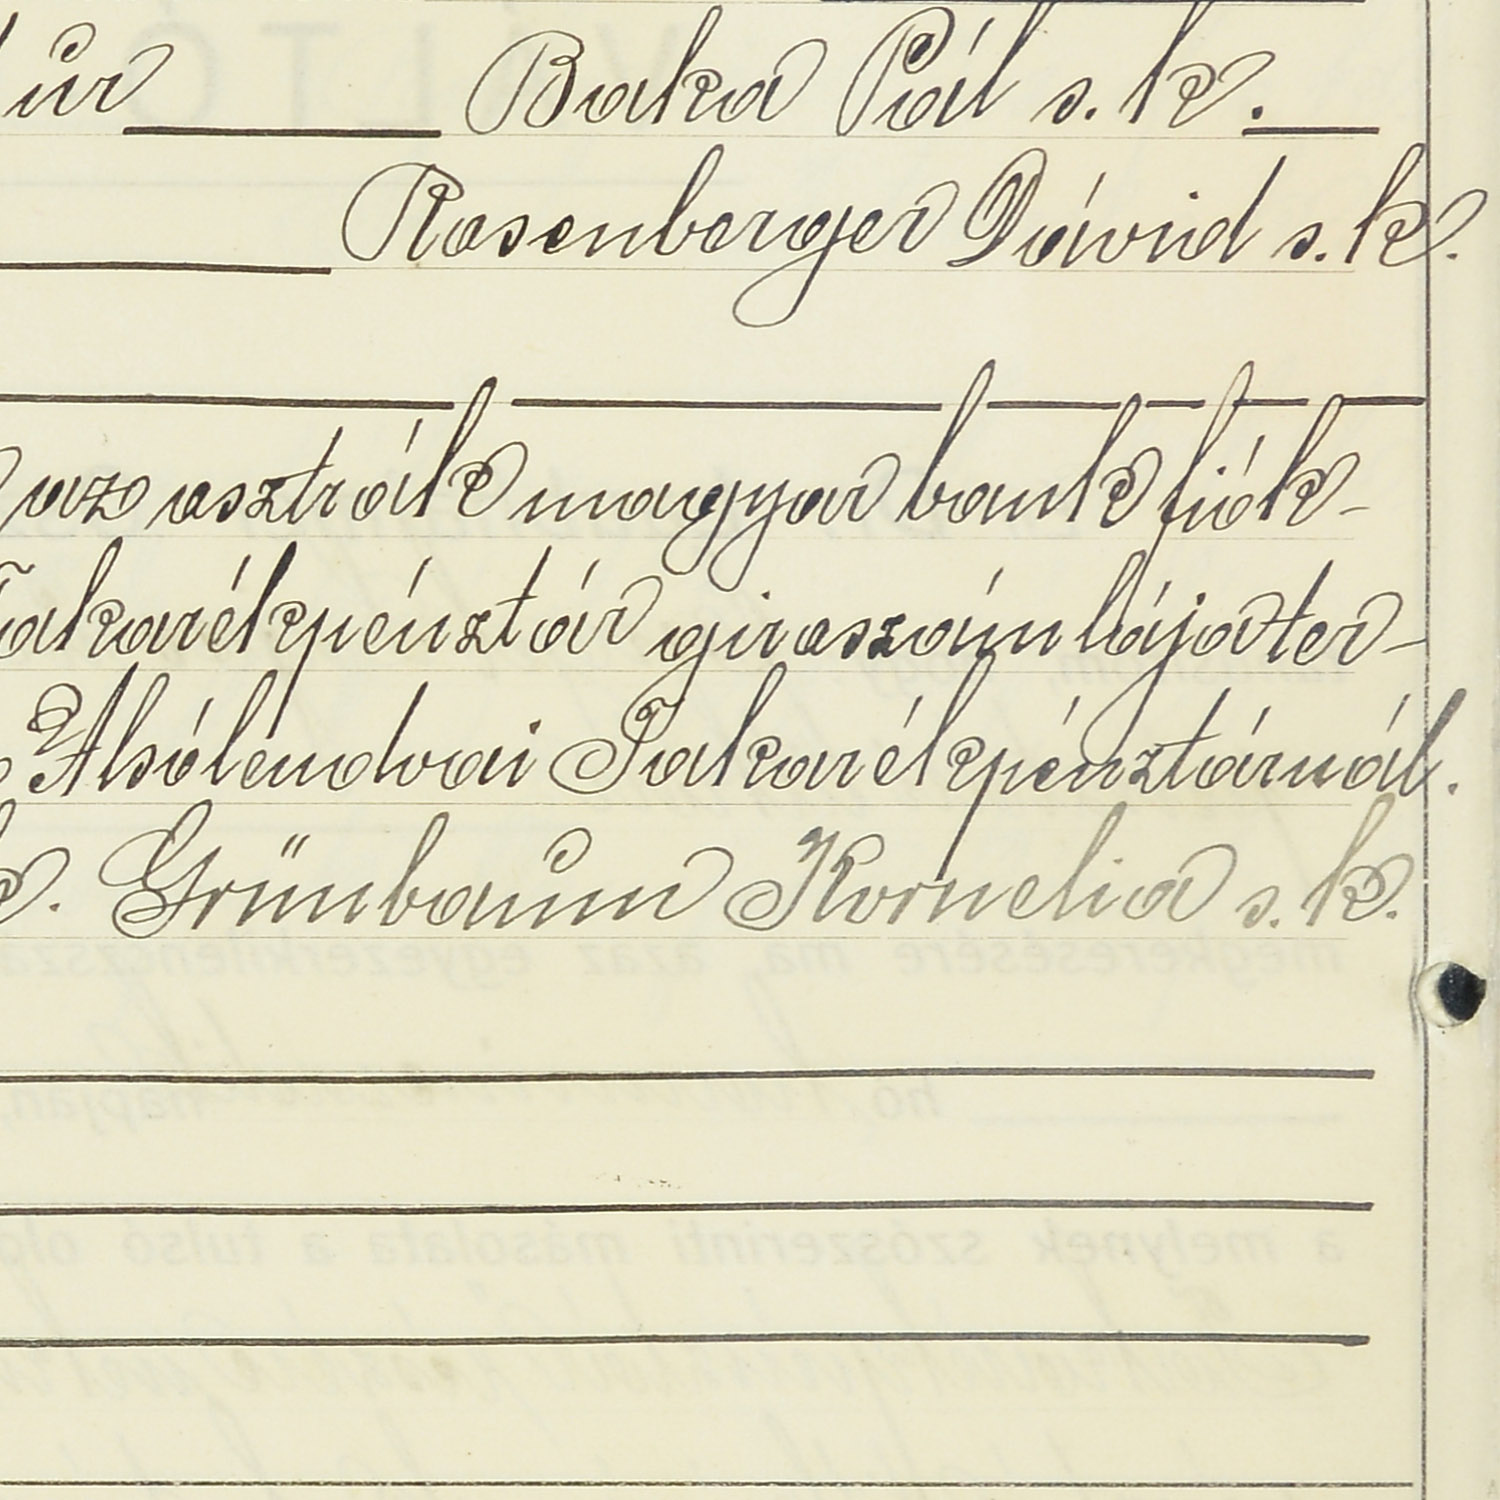 úr Baka Pál s. k.
Rosenberger Dávid s. k.
az osztrák magyar bank fiók-
Takarékpénztár giroszámlája ter-
Alsólendvai Takarékpénztárnál.
k. Grünbaum Kornelia s. k.